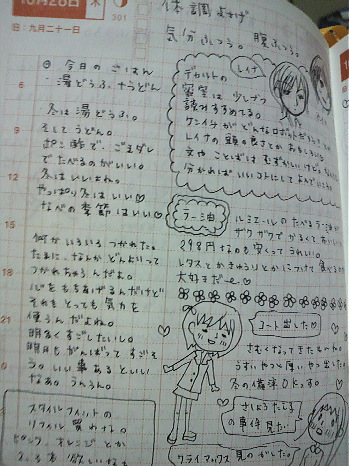 10月28日 木
301
旧:九月二十一日
体調よさげ
気分ふつう。 腹ふつう。
今日のごはん
湯どうふ、うどん
冬は湯どうふ。
そしてうどん。
ポン酢で、ごまダレ
でたべるのがいい。
冬はいいよね。
やっぱり冬はいい♡
なべの季節はいい♡
レイナ
デカルトの
密室は 少しずつ
読みすすめてる。
ケンイチが どんなロボットだろう
レイナの頭の良さとかおもしろい。
文や ことばは むずかしいけど。
分かればいいコトにして よんでいこう
ラー油
ルミエールのたべるラー油が
ザクザクで からくて おいしい
298円なのも 安くって うれしい。
レタスとか きゅうりとかにつけて 食べるのが
大好きだー。
何かいろいろ つかれた。
たまに、なんか どんよりって
つかれちゃうんだよ。
心をもちあげるんだけど
それも とっても 気力を
使うんだよね。
明るくすごしたいし。
明日もがんばって すごそ
う。いい事あるといい
なあ。うんうん。
コート出した♡
さむくなってきたもんね。
うすいやつと厚いやつ出した
冬の備えOKっす。
の事件 見た
クライマックス 見のがした。
スタイルフィットの
リフィル 買わなきゃ。
ピンク、オレンジとか